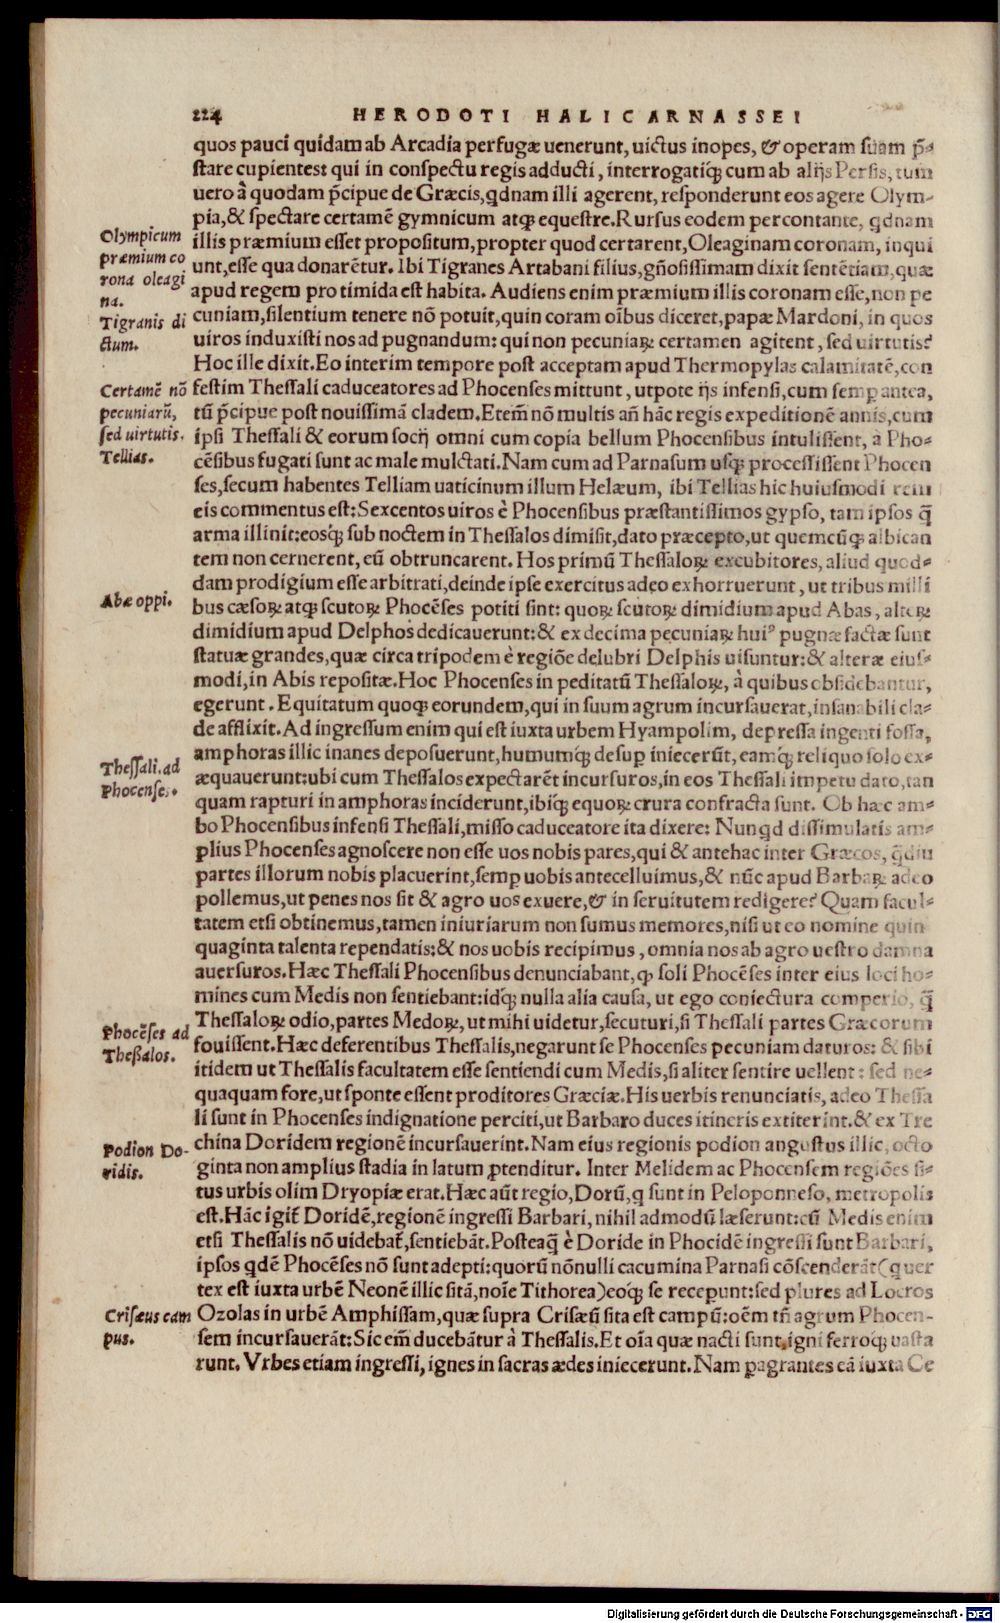 224 HERODOTI HALICARNASSEI
quos pauci quidam ab Arcadia perfugæ uenerunt, uictus inopes, & operam suam p̃-
stare cupientes: qui in conspectu regis adducti, interrogatiq́ꝫ cum ab alijs Persis, tum
uero à quodam p̃cipue de Græcis, qdnam illi agerent, responderunt eos agere Olym-
pia, & spectare certamẽ gymnicum atqꝫ equestre. Rursus eodem percontante, qdnam
illis præmium esset propositum, propter quod certarent, Oleaginam coronam, inqui
unt, esse qua donarẽtur. Ibi Tigranes Artabani filius, gñosissimam dixit sentẽtiam, quæ
apud regem pro timida est habita. Audiens enim præmium illis coronam esse, non pe
cuniam, silentium tenere nõ potuit, quin coram oĩbus diceret, papæ Mardoni, in quos
uiros induxisti nos ad pugnandum: qui non pecuniaꝝ certamen agitent, sed uirtutis?
Hoc ille dixit. Eo interim tempore post acceptam apud Thermopylas calamitatẽ, con
festim Thessali caduceatores ad Phocenses mittunt, utpote ijs infensi, cum semp antea,
tũ p̃cipue post nouissimã cladem. Etem̃ nõ multis añ hãc regis expeditionẽ annis, cum
ipsi Thessali & eorum socij omni cum copia bellum Phocensibus intulissent, à Pho-
cẽsibus fugati sunt ac male mulctati. Nam cum ad Parnasum usqꝫ processissent Phocen
ses, secum habentes Telliam uaticinum illum Helæum, ibi Tellias hic huiusmodi rem
eis commentus est: Sexcentos uiros è Phocensibus præstantissimos gypso, tam ipsos q̃
arma illinit: eosq́ꝫ sub noctem in Thessalos dimisit, dato præcepto, ut quemcũqꝫ albican
tem non cernerent, eũ obtruncarent. Hos primũ Thessaloꝝ excubitores, aliud quod-
dam prodigium esse arbitrati, deinde ipse exercitus adeo exhorruerunt, ut tribus milli
bus cæsoꝝ atqꝫ scutoꝝ Phocẽses potiti sint: quoꝝ scutoꝝ dimidium apud Abas, alteꝝ
dimidium apud Delphos dedicauerunt: & ex decima pecuniaꝝ huiꝰ pugnæ factæ sunt
statuæ grandes, quæ circa tripodem è regiõe delubri Delphis uisuntur: & alteræ eius-
modi, in Abis repositæ. Hoc Phocenses in peditatũ Thessaloꝝ, à quibus obsidebantur,
egerunt. Equitatum quoqꝫ eorundem, qui in suum agrum incursauerat, insanabili cla-
de afflixit. Ad ingressum enim qui est iuxta urbem Hyampolim, depressa ingenti fossa,
amphoras illic inanes deposuerunt, humumq́ꝫ desup iniecerũt, eamq́ꝫ reliquo solo ex-
æquauerunt: ubi cum Thessalos expectarẽt incursuros, in eos Thessali impetu dato, tan
quam rapturi in amphoras inciderunt, ibiq́ꝫ equoꝝ crura confracta sunt. Ob hæc am-
bo Phocensibus infensi Thessali, misso caduceatore ita dixere: Nunqd dissimulatis am-
plius Phocenses agnoscere non esse uos nobis pares, qui & antehac inter Græcos, q̃diu
partes illorum nobis placuerint, semp uobis antecelluimus, & nũc apud Barbaꝝ adeo
pollemus, ut penes nos sit & agro uos exuere, & in seruitutem redigere? Quam facul-
tatem etsi obtinemus, tamen iniuriarum non sumus memores, nisi ut eo nomine quin
quaginta talenta rependatis: & nos uobis recipimus, omnia nos ab agro uestro damna
auersuros. Hæc Thessali Phocensibus denunciabant, ꝙ soli Phocẽses inter eius loci ho-
mines cum Medis non sentiebant: idq́ꝫ nulla alia causa, ut ego coniectura comperio, q̃
Thessaloꝝ odio, partes Medoꝝ, ut mihi uidetur, secuturi, si Thessali partes Græcorum
fouissent. Hæc deferentibus Thessalis, negarunt se Phocenses pecuniam daturos: & sibi
itidem ut Thessalis facultatem esse sentiendi cum Medis, si aliter sentire uellent: sed ne-
quaquam fore, ut sponte essent proditores Græciæ. His uerbis renunciatis, adeo Thessa
li sunt in Phocenses indignatione perciti, ut Barbaro duces itineris extiterint. & ex Tre
china Doridem regionẽ incursauerint. Nam eius regionis podion angustus illic, octo
ginta non amplius stadia in latum ꝓtenditur. Inter Melidem ac Phocensem regiões si-
tus urbis olim Dryopiæ erat. Hæc aũt regio, Dorũ, q sunt in Peloponneso, metropolis
est. Hãc igit̃ Doridẽ, regionẽ ingressi Barbari, nihil admodũ læserunt: cũ Medis enim
etsi Thessalis nõ uidebat̃, sentiebãt. Posteaq̃ è Doride in Phocidẽ ingressi sunt Barbari,
ipsos qdẽ Phocẽses nõ sunt adepti: quorũ nõnulli cacumina Parnasi cõscenderãt (quer
tex est iuxta urbẽ Neonẽ illic sitã, noĩe Tithorea) eoq́ꝫ se recepunt: sed plures ad Locros
Ozolas in urbẽ Amphissam, quæ supra Crisæũ sita est campũ: oẽm tñ agrum Phocen-
sem incursauerãt: Sic em̃ ducebãtur à Thessalis. Et oĩa quæ nacti sunt, igni ferroqꝫ uasta
runt. Vrbes etiam ingressi, ignes in sacras ædes iniecerunt. Nam ꝑagrantes eã iuxta Ce
Olympicum
præmium co
rona oleagi
na.
Tigranis di
ctum.
Certamẽ nõ
pecuniarũ,
sed uirtutis.
Tellias.
Abæ oppi.
Thessali. ad
Phocenses.
Phocẽses ad
Theßalos.
Podion Do-
ridis.
Crisæus cam
pus.
Digitalisierung gefördert durch die Deutsche Forschungsgemeinschaft - DFG